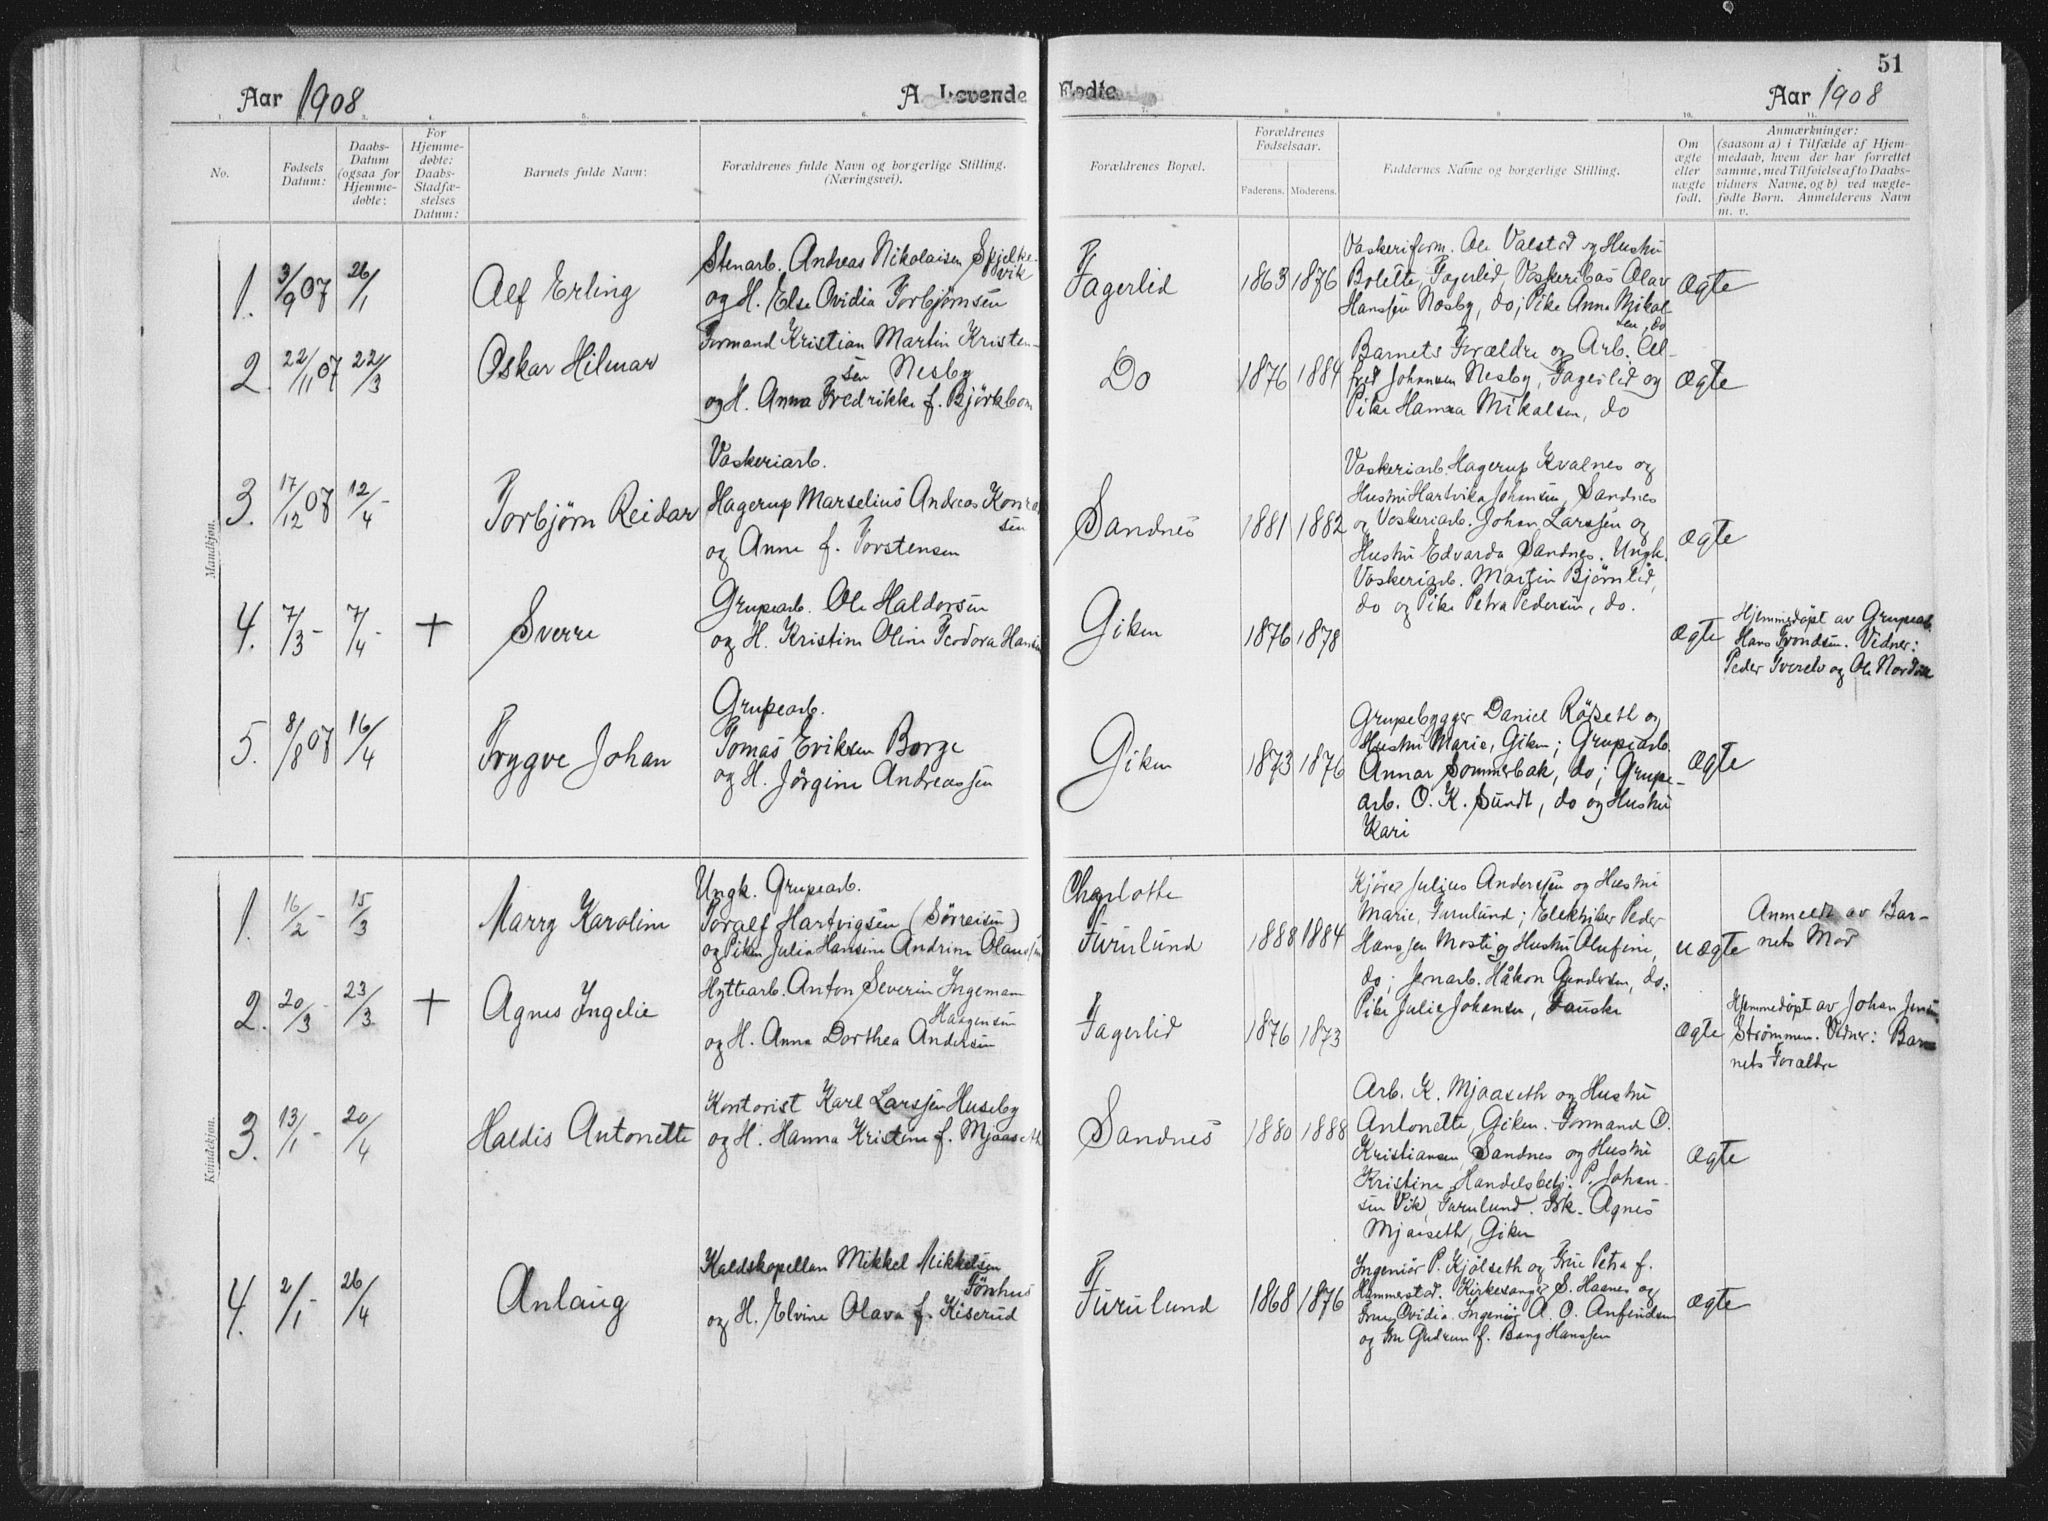 51
Aar 1908
A. Levende Fødte
Aar 1908
1. 2. 3. 4. 5. 6. 7. 8. 9. 10. 11.
No.
Fødsels Datum:
Daabs-Datum (ogsaa for Hjemme-døbte:
For Hjemme-døbte: Daabs-Stadfæ-stelses Datum:
Barnets fulde Navn:
Forældrenes fulde Navn og borgerlige Stilling. (Næringsvei).
Forældrenes Bopæl.
Forældrenes Fødselsaar.
Faderens. Moderens.
Faddernes Navne og borgerlige Stilling.
Om ægte eller uægte født.
Anmærkninger:
(saasom a) i Tilfælde af Hjem-
medaab, hvem der har forrettet
samme, med Tilføielse af to Daabs-
vidners Navne, og b) ved uægte-
fødte Børn. Anmelderens Navn
m. v.
Mandkjøn.
1. 3/9 07 26/1 Alf Erling
Stenarb. Andreas Nikolaisen Skjelke-
vik
og H. Else Ovidia Torbjørnsen
Fagerlid 1863 1876
Vaskeriform. Ole Valstad og Hustru
Bolette, Fagerlid, Vaskeribas Olav
Hanssen Næsby, do; Pike Anna Mikal-
sen, do
Ægte
2. 22/11 07 22/3 Oskar Hilmar
Formand Kristian Martin Kristen-
sen Nesby
og H. Anna Fredrikke f. Björkbom
Do 1876 1884
Barnets Forældre og Arb. Al-
fred Johansen Nesby, Fagerlid og
Pike Hanna Mikalsen, do
Ægte
3. 17/12 07 12/4 - Torbjörn Reidar
Vaskeriarb.
Hagerup Marselius Andreas Konra
sen
og Anne f. Torstensen
Sandnes 1881 1882
Vaskeriarb. Hagerup Kvalnes og
Hustru Hartvika Johansen, Sandnes
og Vaskeriarb. Johan Larssen og
Hustru Edvarda, Sandnes. Ungk.
Vaskeriarb. Martin Bjørnlid,
do og Pike Petra Pedersen, do.
Ægte
4. 7/3 - 7/4 - + Sverre
Grupearb. Ole Haldorsen
og H. Kristine Oline Teodora Hansen
Giken 1876 1878
Ægte
Hjemmedöpt av Grupearb.
Hans Trondsen. Vidner:
Peder Tverelv og Ole Nordli
5. 8/8 07 16/4 Trygve Johan
Grupearb.
Tomas Eriksen Borge
og H. Jörgine Andreassen
Giken 1873 1876
Grupebygger Daniel Röseth og
Hustru Marie, Giken; Grupearb.
Annar Sommerbak, do; Grupe-
arb. O. K. Sundt, do og Hustru
Kari
Ægte
Kvindekjøn.
1. 16/2 - 15/3 Marry Karoline
Ungk. Grupearb.
Toralf Hartvigsen (Sörreisen)
og Piken Julie Hansine Andrine Olaussen
Charlotte
Furulund 1888 1884
Kjörer Julius Anderssen og Hustru
Marie, Furulund; Elektriker Peder
Hanssen Mosti og Hustru Olufine,
do; Jernarb. Håkon Gundersen, do;
Pike Julie Johansen, Fauske
uægte
Anmeldt av Bar-
nets Mor
2. 20/3 - 23/3 + Agnes Ingelie
Hyttearb. Anton Severin Ingeman
Haagensen
og H. Anna Dorthea Andersen
Fagerlid 1876 1873
Ægte
Hjemmedöpt av Johan Jensen
Strømmen. Vidner: Bar
nets Forældre
3. 13/1 - 20/4 Haldis Antonette
Kontorist Karl Larssen Huseby
og H. Hanna Kristine f. Mjaaseth
Sandnes 1880 1888
Arb. K. Mjaaseth og Hustru
Antonette, Giken. Formand O.
Kristiansen, Sandnes og Hustru
Kristine, Handelsbetj. P. Johan-
sen Vik, Furulund. Frk. Agnes
Mjaaseth, Giken
Ægte
4. 2/1 - 26/4 Anlaug
Kaldskapellan Mikkel Mikkelsen
Tönhus
og H. Elvine Olava f. Kiserud
Furulund 1868 1876
Ingeniör P. Kjölseth og Frue Petra f.
Hammerstad. Kirkesanger S. Haanes og
Frue Ovidia. Ingeniör A. O. Anfindsen
og Fru Gudrun f. Bang Hanssen
Ægte